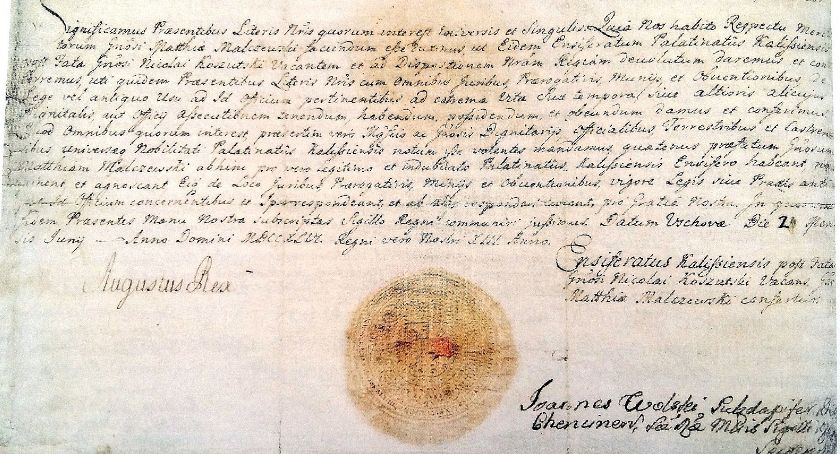 Significamus Præsentibus Literis Nris quorum interest Universis et Singulis. Quia Nos habito Respectu Meri
torum Gnôsi Matthiæ Malczewski faciendum esse duximus ut Eidem Ensiferatum Palatinatûs Kalissiensis
post Fata Gnôsi Nicolai Koszutski Vacantem et ad Dispositionem Nram Regiam devolutum daremus et con
ferremus, uti quidem Præsentibus Literis Nris cum Omnibus Juribus, Prærogativis, Munijs, et Obventionibus de
Lege vel antiquo Usu ad Id Officium pertinentibus ad extrema Vitæ Suæ tempora, sive altioris alicujus
Dignitatis, aut Officij Assecutionem tenendum, habendum, possidendum, et obeundum damus et conferimus
Quod Omnibus quorum interest, præsertim vero Mgficis ac Gnosis Dignitarijs Officialibus Terrestribus et Castren
sibus universæ Nobilitati Palatinatûs Kalissiensis notum esse volentes mandamus, quatenus præfatum Gnosum
Matthiam Malczewski abhinc pro vero legitimo et indubitato Palatinatûs Kalissiensis Ensifero habeant
et agnoscant Eiq de Loco Juribus Prærogativis, Munijs et Obventionibus, vigore Legis sive Praxis
Id Officium concernentibus et respondeant, et ab alijs responderi curent, pro Gratia Nostra. In
fidem Præsentes Manu Nostra Subscriptas Sigillo Regni communiri jussimus. Datum Vschovæ Die 2 Men
sis Junij Anno Domini MDCCXLVI Regni vero Nostri XIII Anno.
Augustus Rex
Ensiferatus Kalissiensis post Fata
Gnôsi Nicolai Koszutski Vacans
Matthiæ Malczewski confertur
Joannes Wolski, Subdapifer
Chencinen, Sæ Ræ Mtis Sigilli